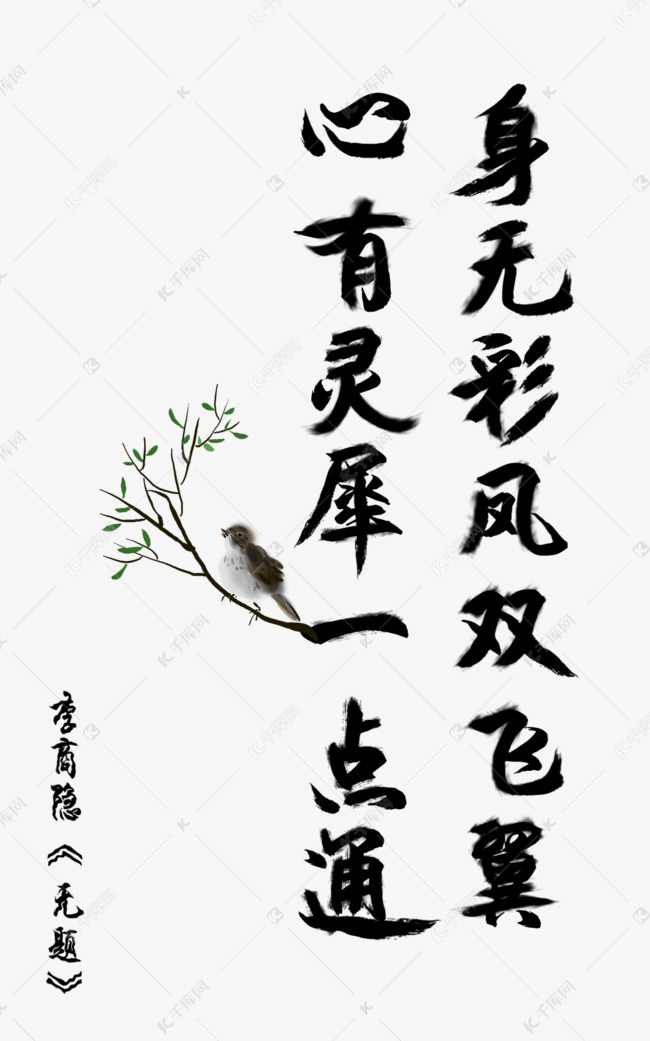 身无彩凤双飞翼
心有灵犀一点通
李商隐《无题》
千库网